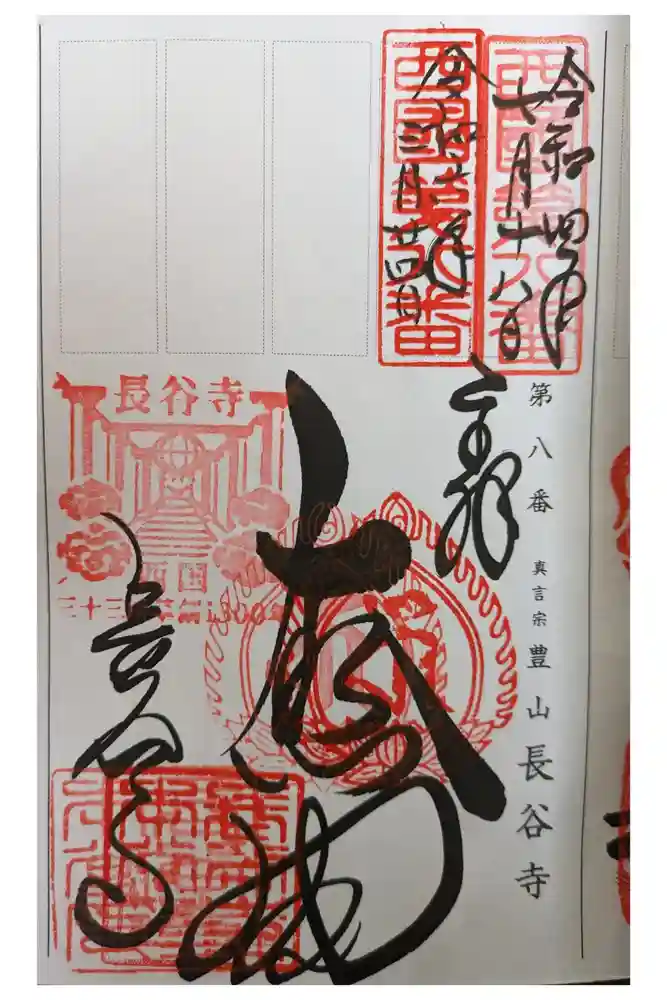 西國第八番
令和四年
七月十八日
西國第八番
三月廿四日
第八番 真言宗豊山長谷寺
奉拝
大悲閣
長谷寺
長谷寺
西国
三十三所草創1300年